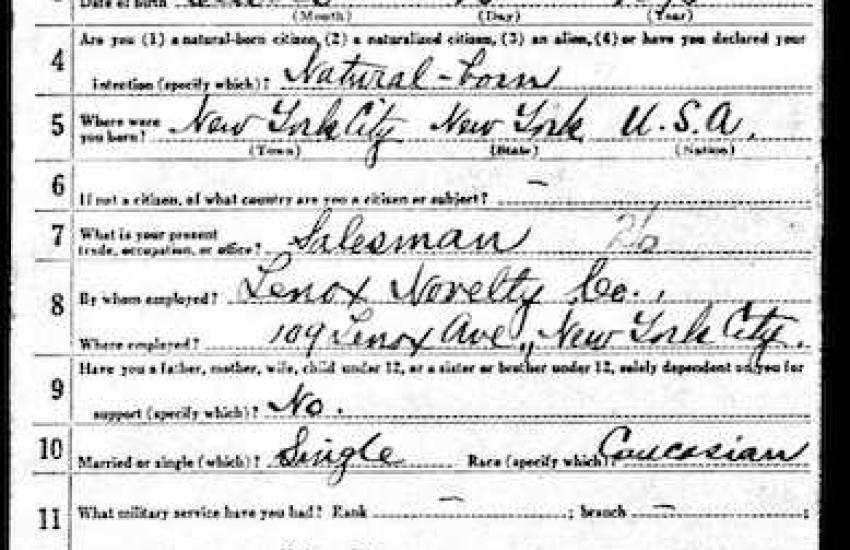 Date of birth
(Month) (Day) (Year)
4 Are you (1) a natural-born citizen, (2) a naturalized citizen, (3) an alien, (4) or have you declared your
intention (specify which)? Natural-born
5 Where were you born? New York City New York U.S.A.
(Town) (State) (Nation)
6 If not a citizen, of what country are you a citizen or subject? –
7 What is your present trade, occupation, or office? Salesman
8 By whom employed? Lenox Novelty Co.,
Where employed? 109 Lenox Ave., New York City.
9 Have you a father, mother, wife, child under 12, or a sister or brother under 12, solely dependent on you for
support (specify which)? No.
10 Married or single (which)? Single Race (specify which)? Caucasian
11 What military service have you had? Rank – ; branch – ;